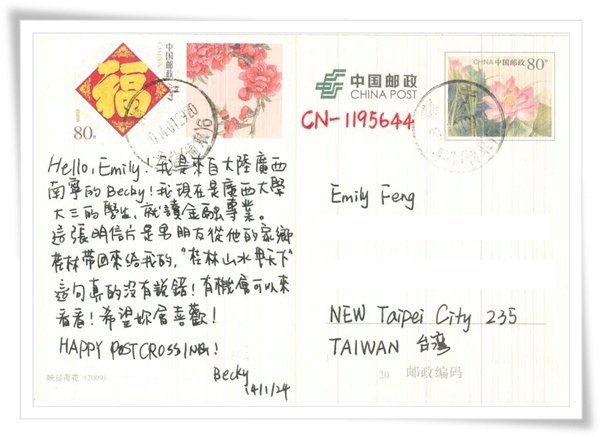 福
80分
中国邮政
CHINA
中国邮政
CHINA POST
CHINA 中国邮政 80分
CN-1195644
Hello, Emily! 我是來自大陸廣西
南寧的 Becky! 我現在是廣西大學
大三的學生, 就讀金融專業。
這張明信片是男朋友從他的家鄉
桂林帶回來給我的, "桂林山水甲天下"
這句真的沒有說錯! 有機會可以來
看看! 希望妳會喜歡!
HAPPY POSTCROSSING!
Becky
14/1/24
Emily Feng
NEW Taipei City 235
TAIWAN 台湾
映日荷花 (2009)
20
邮政编码